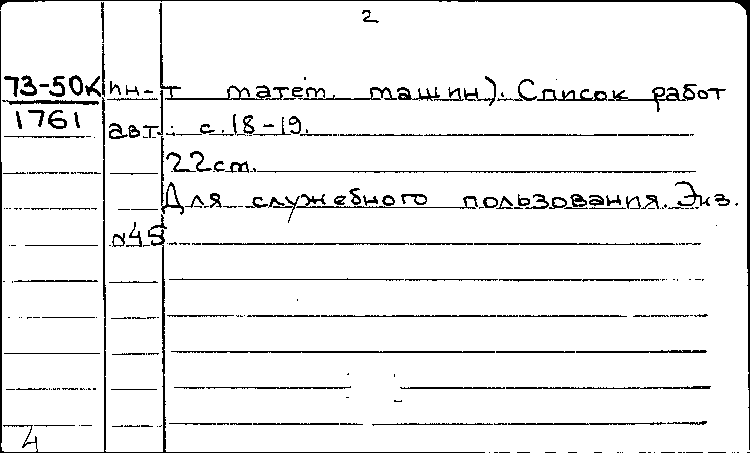 2
73-50К ин-т матем. машин). Список работ
1761 авт.: с. 18-19.
22см.
Для служебного пользования. Экз.
№45
4